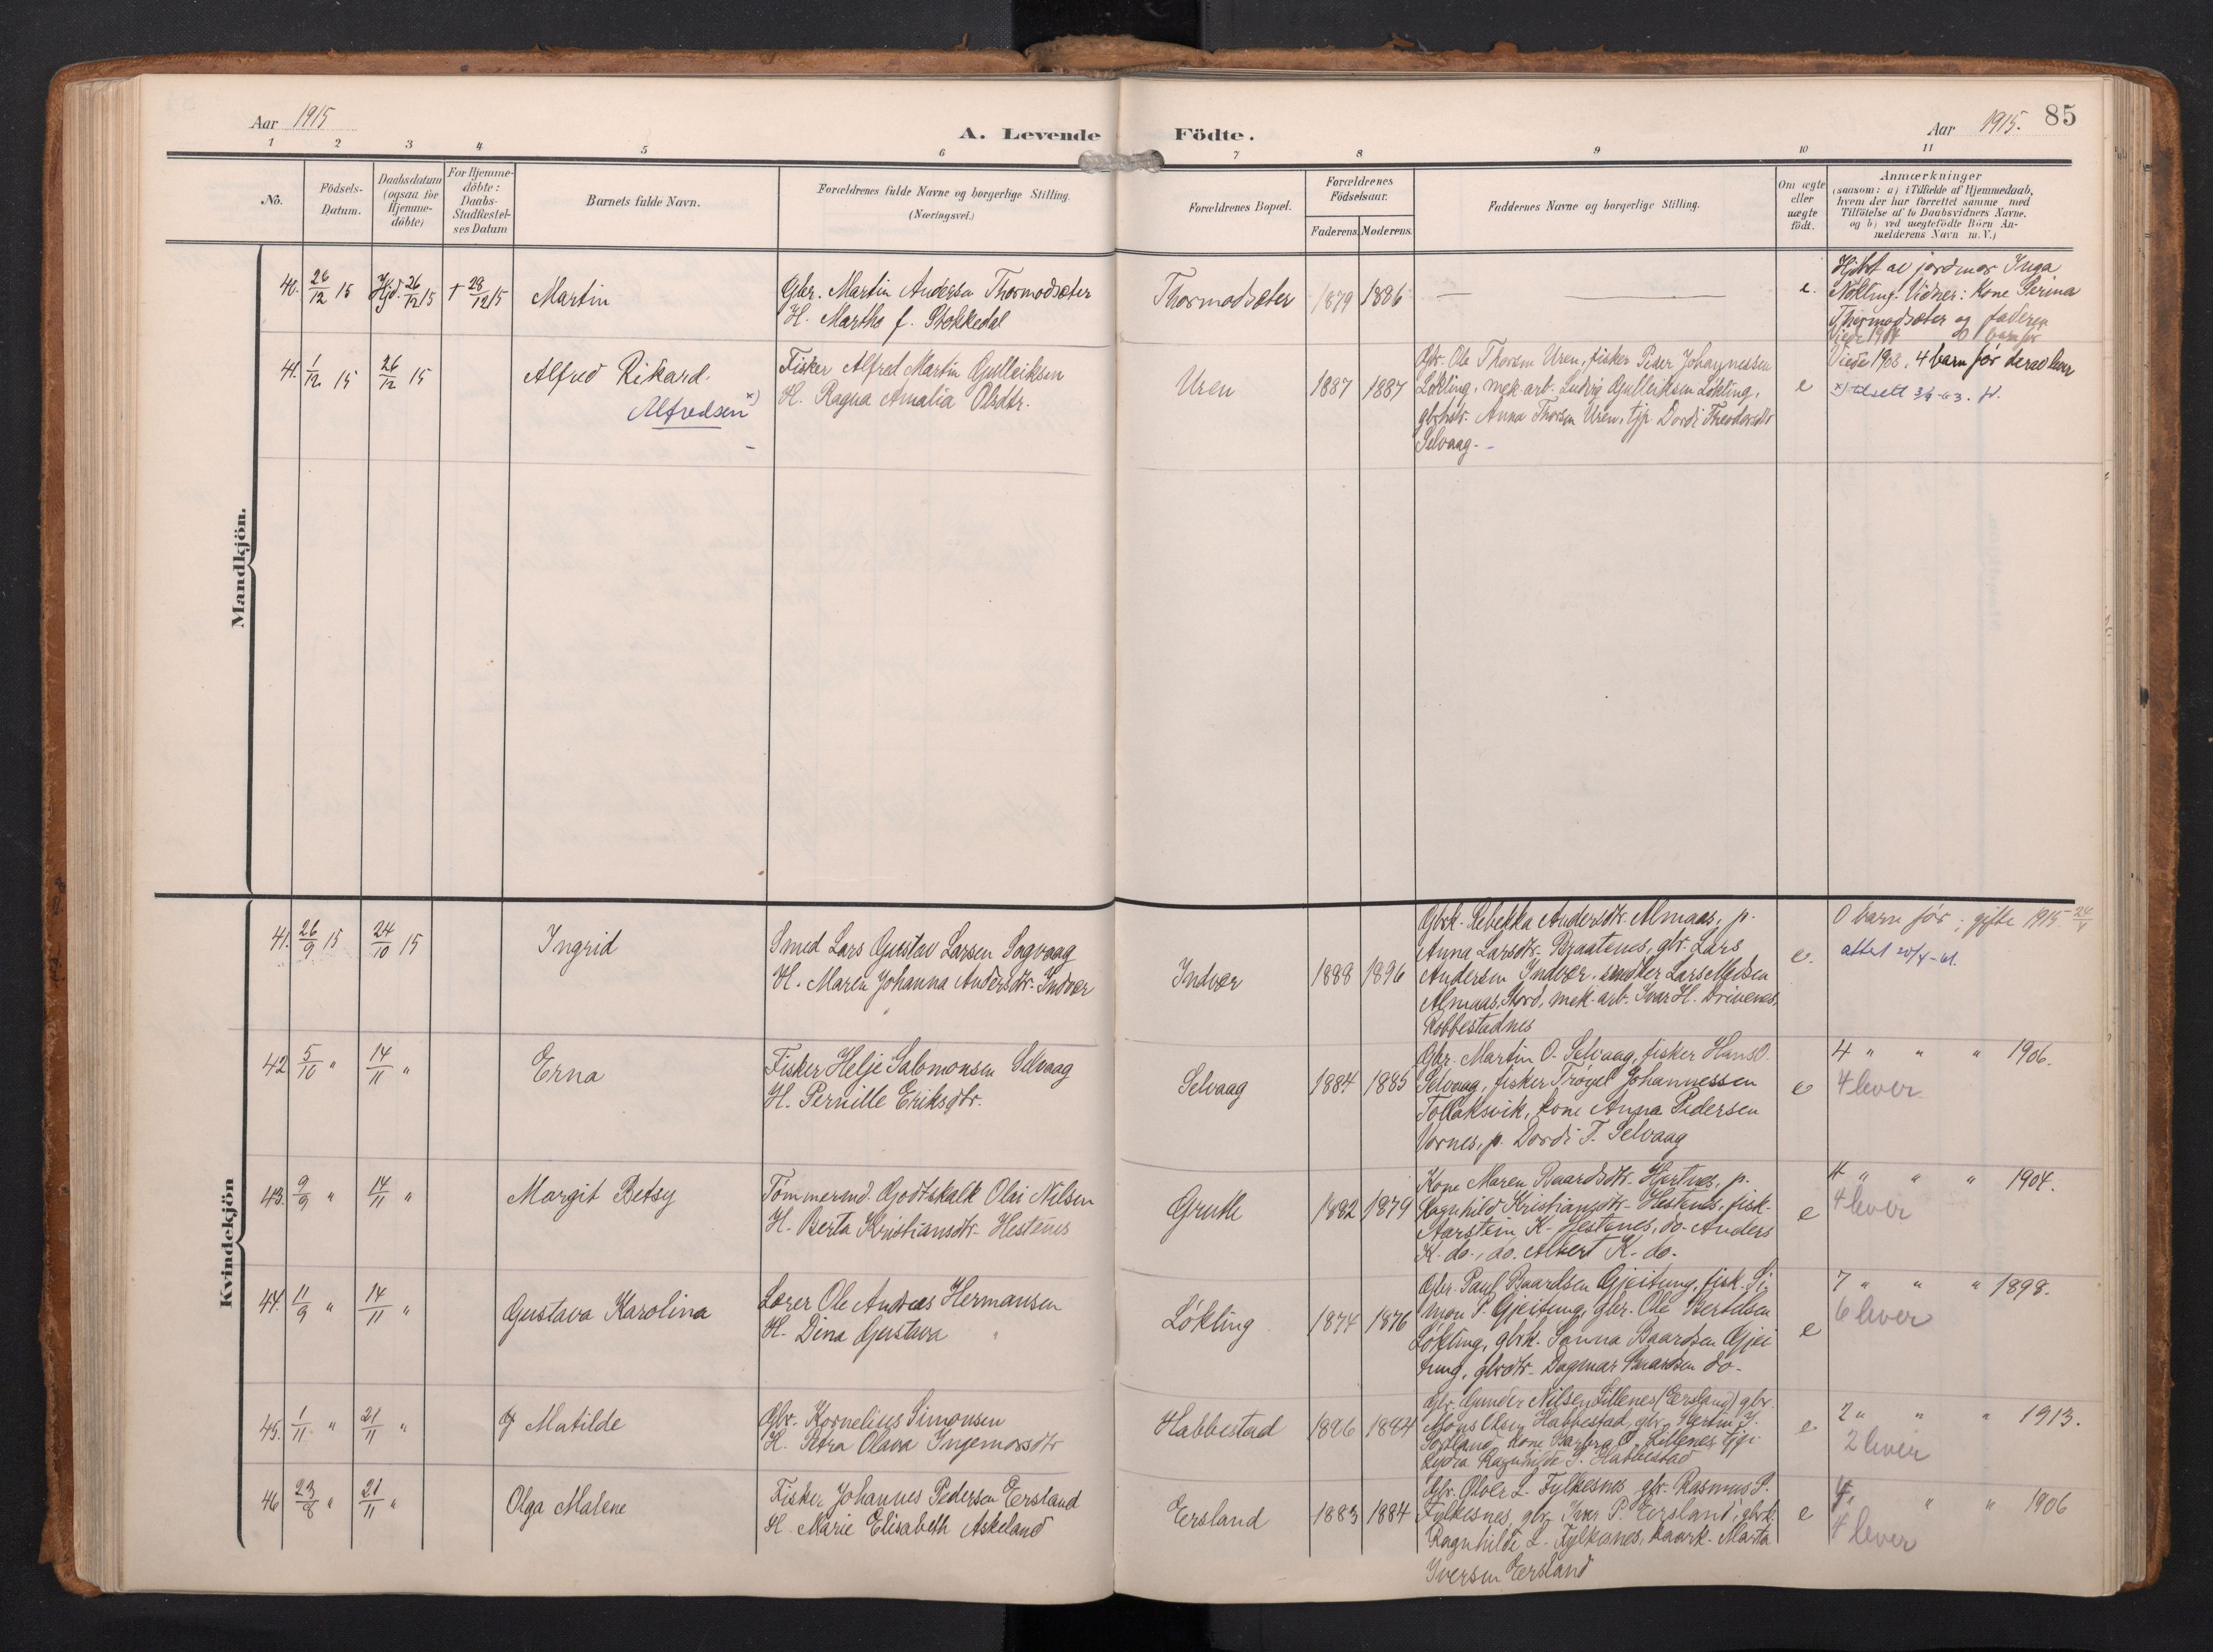 85
Aar 1915
A. Levende Födte.
Aar 1915.
1 2 3 4 5 6 7 8 9 10 11
No.
Födsels-
Datum.
Daabsdatum
(ogsaa for
Hjemme-
döbte)
For Hjemme-
döbte:
Daabs-
Stadfæstel-
ses Datum
Barnets fulde Navn.
Forældrenes fulde Navne og borgerlige Stilling.
(Næringsvei.)
Forældrenes Bopæl.
Forældrenes
Födselsaar.
Faderens. Moderens.
Faddernes Navne og borgerlige Stilling.
Om ægte
eller
uægte
födt.
Anmærkninger
(saasom: a) i Tilfælde af Hjemmedaab,
hvem der har forrettet samme, med
Tilföielse af to Daabsvidners Navne.
og b) ved uægtefödte Börn An-
melderens Navn m. V.)
Mandkjön.
40. 26/12 15 Hjd. 26/12 15 † 28/12 15 Martin
Gbr. Martin Andersen Thormodsæter
H. Martha f. Stokkedal
Thormodsæter 1879 1886 — — e.
Hjdbt av jordmor Inga
Nökling. Vidner: Kone Serina
Thormodsæter og faderen
41. 1/12 15 26/12 15 Alfred Rikard.
Alfredsen x)
Fisker Alfred Martin Gulleiksen
H. Ragna Amalia Olsdtr.
Uren 1887 1887
Gbr. Ole Thorsen Uren, fisker Peder Johannessen
Løkling, mek. arb. Ludvig Gulleiksen Løkling,
Anna Thorsen Uren, tjp. Dordi Theodorsdtr
Selvaag.-
e
Viede 1908. 4 barn før derav lever
Kvindekjön
41. 26/9 15 24/10 15 Ingrid
Smed Lars Gustav Larsen Sagvaag
H. Maren Johanna Andersdtr. Indvær
Indvær 1888 1896
Gbrk. Rebekka Andersdtr. Almaas, p.
Anna Larsdtr. Braatenes, gbr. Lars
Andersen Indvær, snedker Lars Nielsen
Almaas, Stord, mek. arb. Ivar H. Drivenes
Robbestadnes
e.
0 barn før; gifte 1915 24/4
attest 20/4-61.
42 5/10 " 14/11 " Erna
Fisker Helje Salomonsen Selvaag
H. Pernille Eriksdtr.
Selvaag 1884 1885
Gbr. Martin O. Selvaag, fisker Hans O.
Selvaag, fisker Johannessen
Tollaksvik, kone Anna Pedersen
Vornes, p. Dordi T. Selvaag
e
4 " " " 1906.
4 lever
43. 9/9 " 14/11 " Margit Betsy
Tömmermd. Godtskalk Olai Nilsen
H. Berta Kristiansdtr. Hestenes
Grutle 1882 1879
Kone Maren Baardsdtr. Hjertnes, p.
Ragnhild Kristiansdtr. Hestenes, fisk.
Aarstein K. Hestenes, do. Anders
K. do., do. Albert K. do.
e
4 " " " 1904.
4 lever
44. 11/9 " 14/11 " Gustava Karolina
Lærer Ole Andreas Hermansen
H. Dina Gustava "
Løkling 1874 1876
Gbr. Paul Baardsen Gjeitung, fisk. Si-
mon P. Gjeitung, gbr. Ole Bertelsen
Løkling, gbrk. Sanna Baardsen Gjei
tung, gbrdtr. Dagmar Baardsen do.
e
7 " " " 1898.
6 lever
45. 1/11 " 21/11 " Matilde
Gbr. Kornelius Simonsen
H. Petra Olava Ingemarsdtr
Habbestad 1896 1894
Gbr. Gunder Nilsen Lillenes (Eersland) gbr.
Mons Olsen Habbestad, gbr.
kone Barbra O. Lillenes, tjp.
Lydia Ragnhilde S. Habbestad
e
2 " " " 1913.
2 lever
46 23/8 " 21/11 " Olga Malene
Fisker Johannes Pedersen Eersland
H. Marie Elisabeth Askeland
Eersland 1883 1884
Gbr. Oliver L. Fylkesnes, gbr. Rasmus P.
Fylkesnes, gbr. Iver P. Eersland, gbrk.
Ragnhilde L. Fylkesnes, Marta
Iversen Eersland
e
4 " " " 1906
4 lever